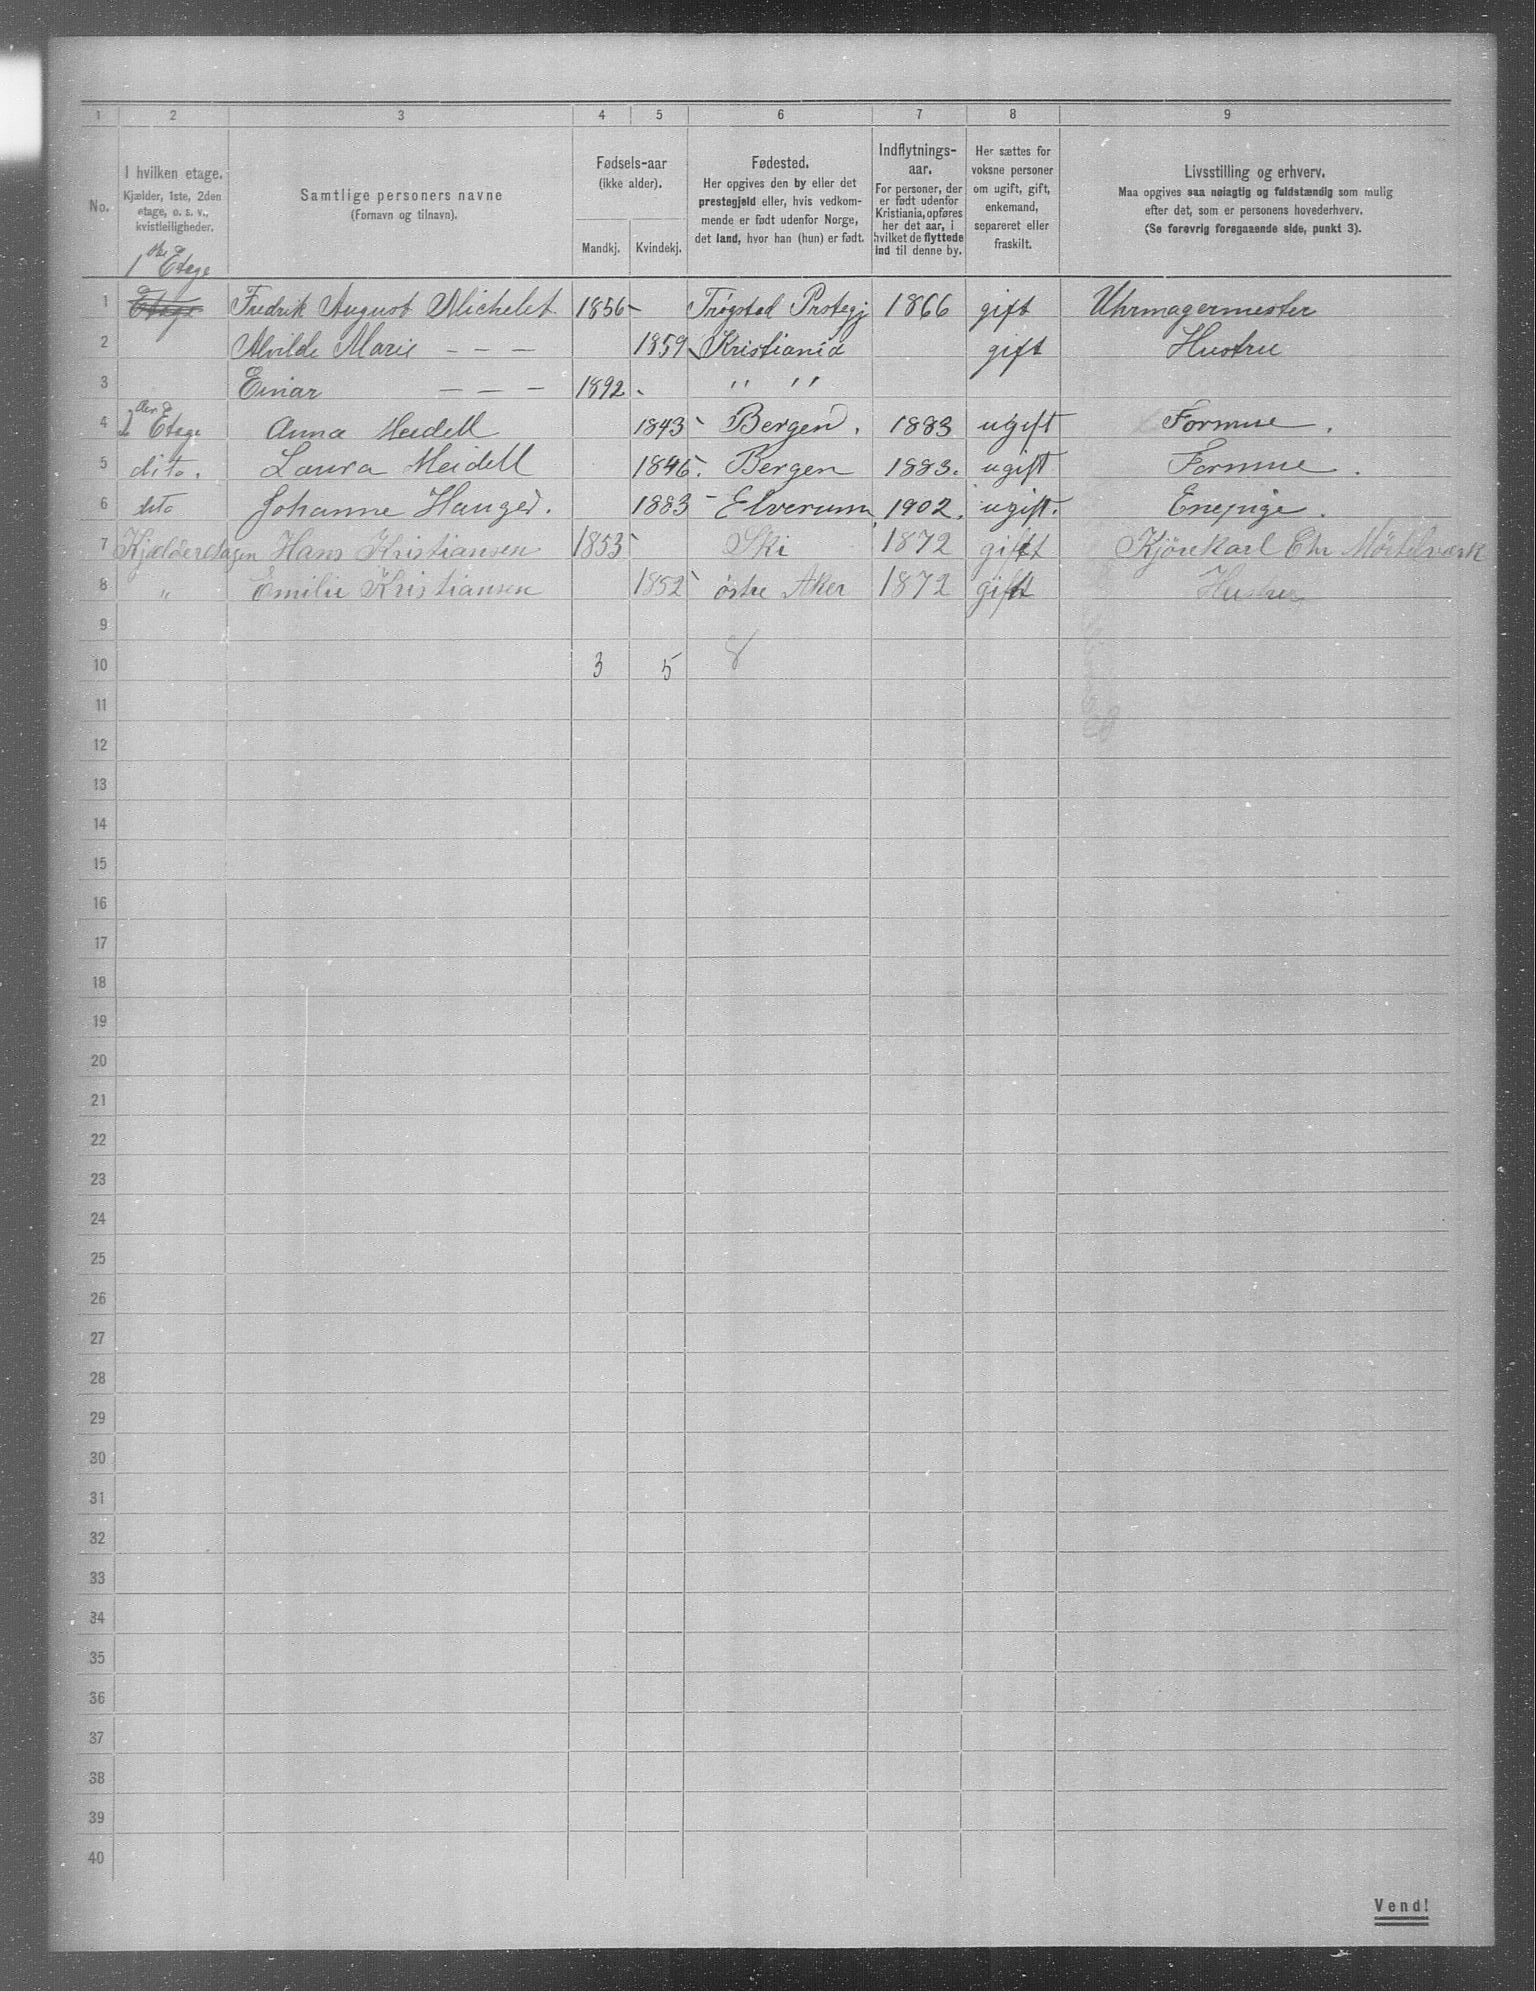 1 2 3 4 5 6 7 8 9
No.
I hvilken etage.
Kjælder, 1ste, 2den
etage, o. s. v.,
kvistleiligheder.
Samtlige personers navne
(Fornavn og tilnavn).
Fødsels-aar
(ikke alder).
Mandkj. Kvindekj.
Fødested.
Her opgives den by eller det
prestegjeld eller, hvis vedkom-
mende er født udenfor Norge,
det land, hvor han (hun) er født.
Indflytnings-
aar.
For personer, der
er født udenfor
Kristiania, opføres
her det aar, i
hvilket de flyttede
ind til denne by.
Her sættes for
voksne personer
om ugift, gift,
enkemand,
separeret eller
fraskilt.
Livsstilling og erhverv.
Maa opgives saa nøiagtig og fuldstændig som mulig
efter det, som er personens hovederhverv.
(Se forøvrig foregaaende side, punkt 3).
1ste Etage
1 Etage Fredrik August Michelet 1856 - Trøgstad Prstegj 1866 gift Uhrmagermester
2 Alvilde Marie - - - 1859 Kristiania gift Hustru
3 Einar - - - 1892 " "
4 2den Etage Anna Meidell 1843 Bergen. 1883 ugift Formue.
5 dito. Laura Meidell 1846. Bergen 1883. ugift Formue.
6 dito Johanne Hauger. 1883 - Elverum 1902. ugift. Enepige.
7 Kjælderetagen Hans Kristiansen 1853 Ski 1872 gift Kjørekarl Chr Mörtelværk
8 " Emilie Kristiansen 1852 østre Aker 1872 gift Hustru
9
10 3 5 8
11
12
13
14
15
16
17
18
19
20
21
22
23
24
25
26
27
28
29
30
31
32
33
34
35
36
37
38
39
40
Vend!